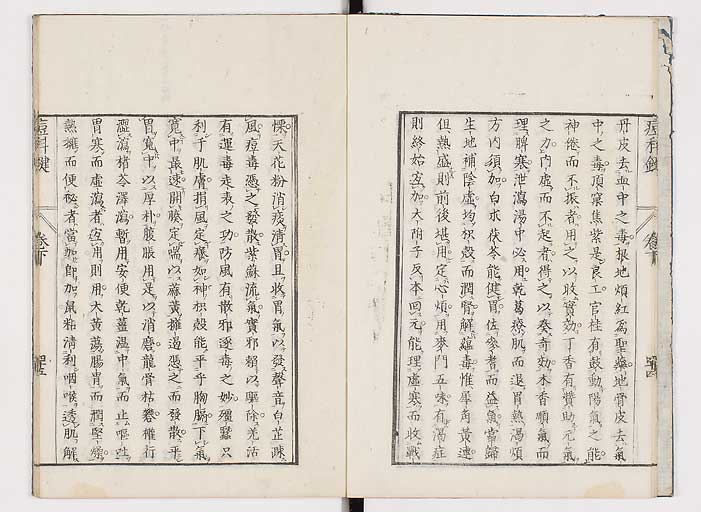 痘科鍵 巻下 四十四
丹皮去血中之毒根地煩紅爲聖藥地骨皮去氣
中之毒頂窠焦紫是良工官桂有鼓動陽氣之能
神倦而不振者用之以收實効丁香有贊助元氣
之力内虚而不起者得之以奏奇効木香順氣而
理脾寒泄瀉湯中必用乾葛療肌而退胃熱渇煩
方内須加白朮茯苓能健胃佐參耆而益氣當歸
生地補陰虚均枳殻而潤腎解蘊毒惟犀角黄連
但熱盛則前後堪用定心煩用麥門五味有渇症
則終始宜加大附子反本回元能理虚寒而收戰
慄天花粉消痰清胃且收胃氣以發聲音白芷疎
風痘毒憑之發散紫蘇流氣實邪頼以驅除羌活
有運毒走表之功防風有散邪逐毒之妙殭蠶只
利于肌膚捐風定癢如神枳殻能平乎胸膈下氣
寛中最速開腠定喘以蔴黄擁遏憑之而發散平
胃寛中以厚朴腹脹用足以消磨龍骨枯礬權行
澀瀉猪苓澤瀉暫用安便乾薑温中氣而止嘔吐
胃寒而虚瀉者宜用則用大黄蕩腸胃而潤堅燥
熱擁而便秘者當加即加鼠粘清利咽喉透肌解
痘科鍵 巻下 四十五